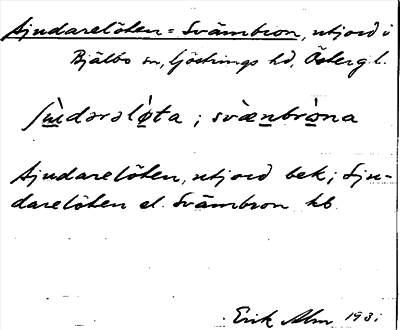 Sjudarelöten = Svämbron, utjord i
Bjälbo sn, Göstrings hd, Östergl.
ʃɯ̀dərəlǿta ; svæ̀nbròna
Sjudarelöten, utjord bek; Sju-
darelöten el. Svämbron kb
Erik Alm 193